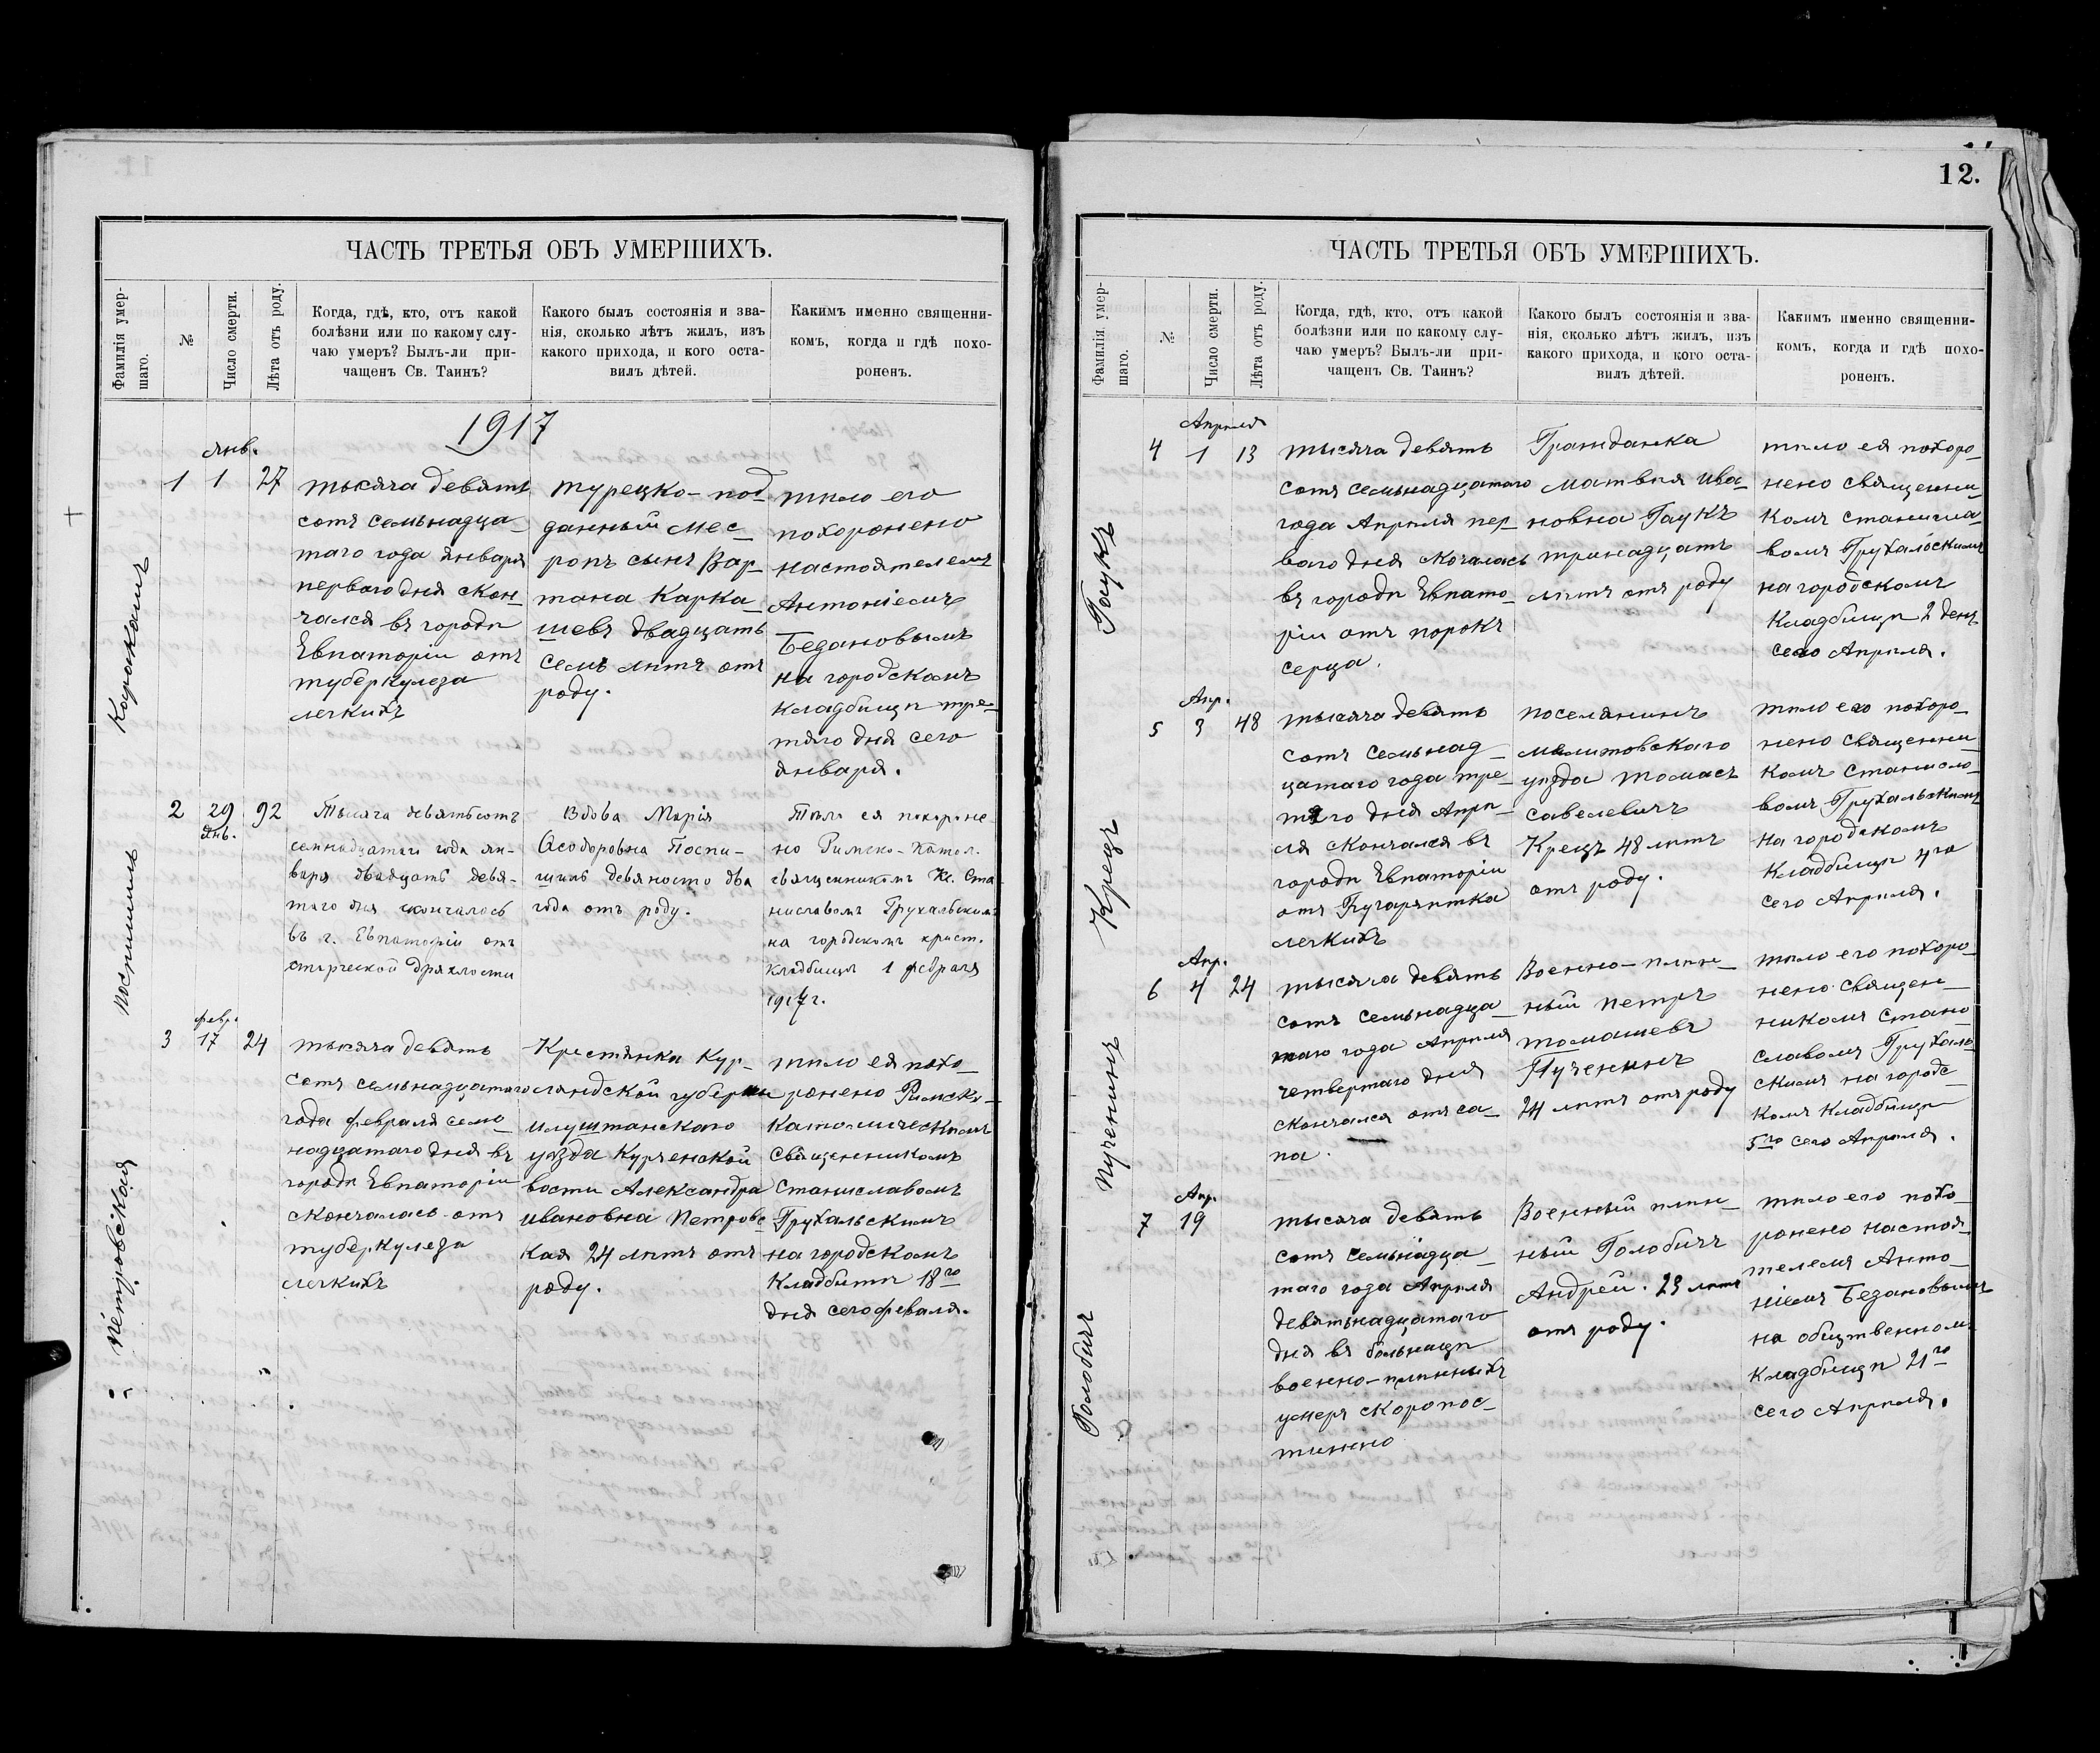 ЧАСТЬ ТРЕТЬЯ ОБЪ УМЕРШИХЪ.
Фамилія умер-
шаго.
№
Число смерти.
Лѣта отъ роду.
Когда, гдѣ, кто, отъ какой
болѣзни или по какому слу-
чаю умеръ? Былъ-ли при-
чащенъ Св. Таинъ?
Какого былъ состоянія и зва-
нія, сколько лѣтъ жилъ, изъ
какого прихода, и кого оста-
вилъ дѣтей.
Какимъ именно священни-
комъ, когда и гдѣ похо-
роненъ.
1917
янв.
1 1 27
тысяча девять
сотъ семьнадца-
таго года января
перваго дня скон-
чался въ городѣ
Евпаторіи отъ
туберкулеза
легкихъ
турецко-под-
данный Мес-
ропъ сынъ Вар-
тана
двадцать
семъ лѣтъ отъ
роду.
тѣло его
похоронено
настоятелемъ
Антоніемъ
Бедановымъ
на городскомъ
кладбищѣ тре-
тяго дня сего
января.
Поспишиль
2 29 92
янв.
Тысяча девятьсотъ
семнадцатаго года ян-
варя двадцать девя-
таго дня скончалось
въ г. Евпаторіи отъ
старческой дряхлости
Вдова Марія
Ѳеодоровна Поспи-
шиль девяносто два
года отъ роду.
Тѣло ея похороне-
но Римско-Катол.
священникомъ Кс. Ста-
ниславомъ Грухальскимъ
на городскомъ христ.
кладбищѣ 1 февраля
1917 г.
Петровская
февр.
3 17 24
тысяча девять
сотъ семьнадцатаго
года февраля семь-
надцатаго дня въ
городѣ Евпаторіи
скончалась отъ
туберкулеза
легкихъ
Крестянка Кур-
ляндской губерніи
илуштанскаго
уѣзда Курченской
вости Александра
ивановна Петровс-
кая 24 лѣтъ отъ
роду.
тѣло ея похо-
ронено Римско-
католическимъ
священникомъ
Станиславомъ
Грухальскимъ
на городскомъ
кладбитѣ 18го
дня сего феваля.
12.
ЧАСТЬ ТРЕТЬЯ ОБЪ УМЕРШИХЪ.
Фамилія умер-
шаго.
№
Число смерти.
Лѣта отъ роду.
Когда, гдѣ, кто, отъ какой
болѣзни или по какому слу-
чаю умеръ? Былъ-ли при-
чащенъ Св. Таинъ?
Какого былъ состоянія и зва-
нія, сколько лѣтъ жилъ, изъ
какого прихода, и кого оста-
вилъ дѣтей.
Какимъ именно священни-
комъ, когда и гдѣ похо-
роненъ.
Гаукъ
Апрѣля
4 1 13
тысяча девять
сотъ семьнадцатаго
года Апрѣля пер-
ваго дня скочалась
въ городѣ Евпато-
ріи отъ порокъ
серца.
Гражданка
Матвѣя ива-
новна Гаукъ
тринадцать
лѣтъ отъ роду
тѣло ея похоро-
нено священни-
комъ станисла-
вомъ Грухальскимъ
на городскомъ
кладбищѣ 2 день
сего Апрѣля.
Крецъ
Апр.
5 3 48
тысяча девять
сотъ семьнад-
цатаго года тре-
тяго дня Апрѣ-
ля скончался въ
городѣ Евпаторіи
отъ
легкихъ
поселянинъ
мелитовскаго
уѣзда томасъ
савелевичъ
Крецъ 48 лѣтъ
отъ роду.
тѣло его похоро-
нено священни-
комъ станисла-
вомъ Грухальскимъ
на городскомъ
кладбищѣ 4го
сего Апрѣля.
Пученинъ
Апр.
6 4 24
тысяча девять
сотъ семьнадца-
таго года Апрѣля
четвертаго дня
скончался отъ са-
па.
Военно-плѣн-
ный петръ
томашевъ
Пученинъ
24 лѣтъ отъ роду
тѣло его похоро-
нено священ-
никомъ стани-
славомъ Грухаль-
скимъ на городс-
комъ кладбищѣ
5го сего Апрѣля.
Голобичъ
Апр.
7 19
тысяча девять
сотъ семьнадца-
таго года Апрѣля
девятьнадцатаго
дня въ больницѣ
военно-плѣнныхъ
умеръ скоропос-
тижно
Военный плѣн-
ный Голобичъ
Андрей. 23 лѣтъ
отъ роду.
тѣло его похо-
ронено настоя-
телемъ Анто-
ніемъ Бедановымъ
на общтвенномъ
кладбищѣ 21го
сего Апрѣля.